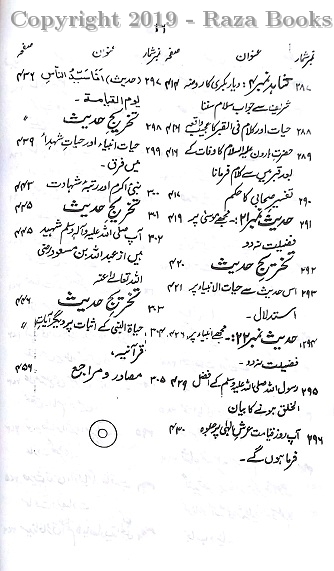 Copyright 2019 - Raza Books
نمبر شمار عنوان صفحہ
۲۸۷ شریف سے جواب سلام سننا
۲۸۸ حیات اور کلام فی القبر کا عجیب واقعہ ۴۱۶
۲۸۹ حضرت ہارون علیہ السلام کا وفات کے ۴۱۶
بعد قبر میں سے کلام فرمانا
۲۹۰ تفسیر صحابی کا حکم ۴۱۷
۲۹۱ حدیث نمبر ۲۱:۔ مجھے موسیٰ پر ۴۱۹
فضیلت نہ دو
۲۹۲ تخریج حدیث ۴۲۰
۲۹۳ اس حدیث سے حیات الانبیاء پر ۴۲۱
استدلال۔
۲۹۴ حدیث نمبر ۲۲:۔ مجھے انبیاء پر ۴۲۶
فضیلت نہ دو۔
۲۹۵ رسول اللہ صلی اللہ علیہ وسلم کے افضل ۴۲۹
الخلق ہونے کا بیان
۲۹۶ آپ روز قیامت عرش الہٰی پر جلوہ ۴۳۰
فرما ہوں گے۔
نمبر شمار عنوان صفحہ
۲۹۷ (حدیث) انا سید الناس ۴۳۶
یوم القیامۃ۔
۲۹۸ تخریج حدیث
۲۹۹ حیات انبیاء اور حیات شہداء ۴۳۹
میں فرق۔
۳۰۰ نبی اکرم اور رتبۂ شہادت ۴۴۳
۳۰۱ تخریج حدیث ۴۴۵
۳۰۲ آپ صلی اللہ علیہ وآلہ وسلم شہید ۴۴۵
ہیں از عبد اللہ بن مسعود رضی
اللہ تعالےٰ عنہ
۳۰۳ تخریج حدیث ۴۴۶
۳۰۴ حیاۃ النبی کے اثبات پر دیگر آیات
قرآنیہ۔
۳۰۵ مصادر و مراجع ۴۵۹